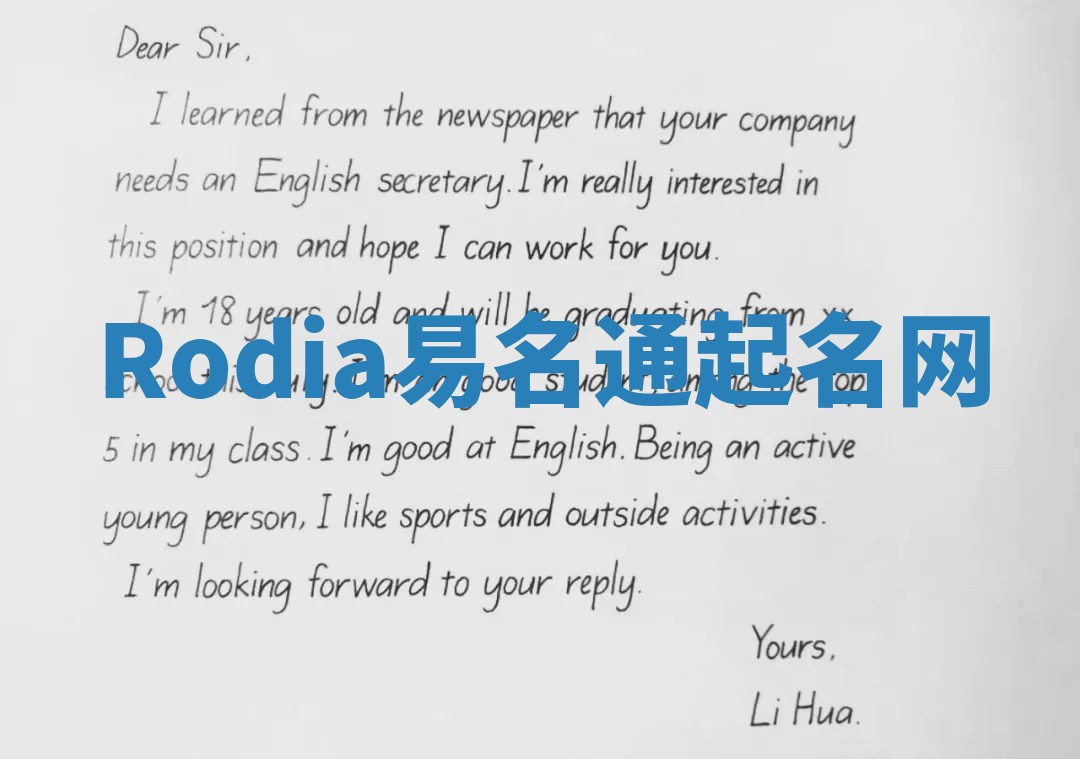 Dear Sir,
I learned from the newspaper that your company
needs an English secretary. I'm really interested in
this position and hope I can work for you.
I'm 18 years old and will be graduating from xx
Rodia易名通起名网
school this July. I'm a good student, among the top
5 in my class. I'm good at English. Being an active
young person, I like sports and outside activities.
I'm looking forward to your reply.
Yours,
Li Hua.